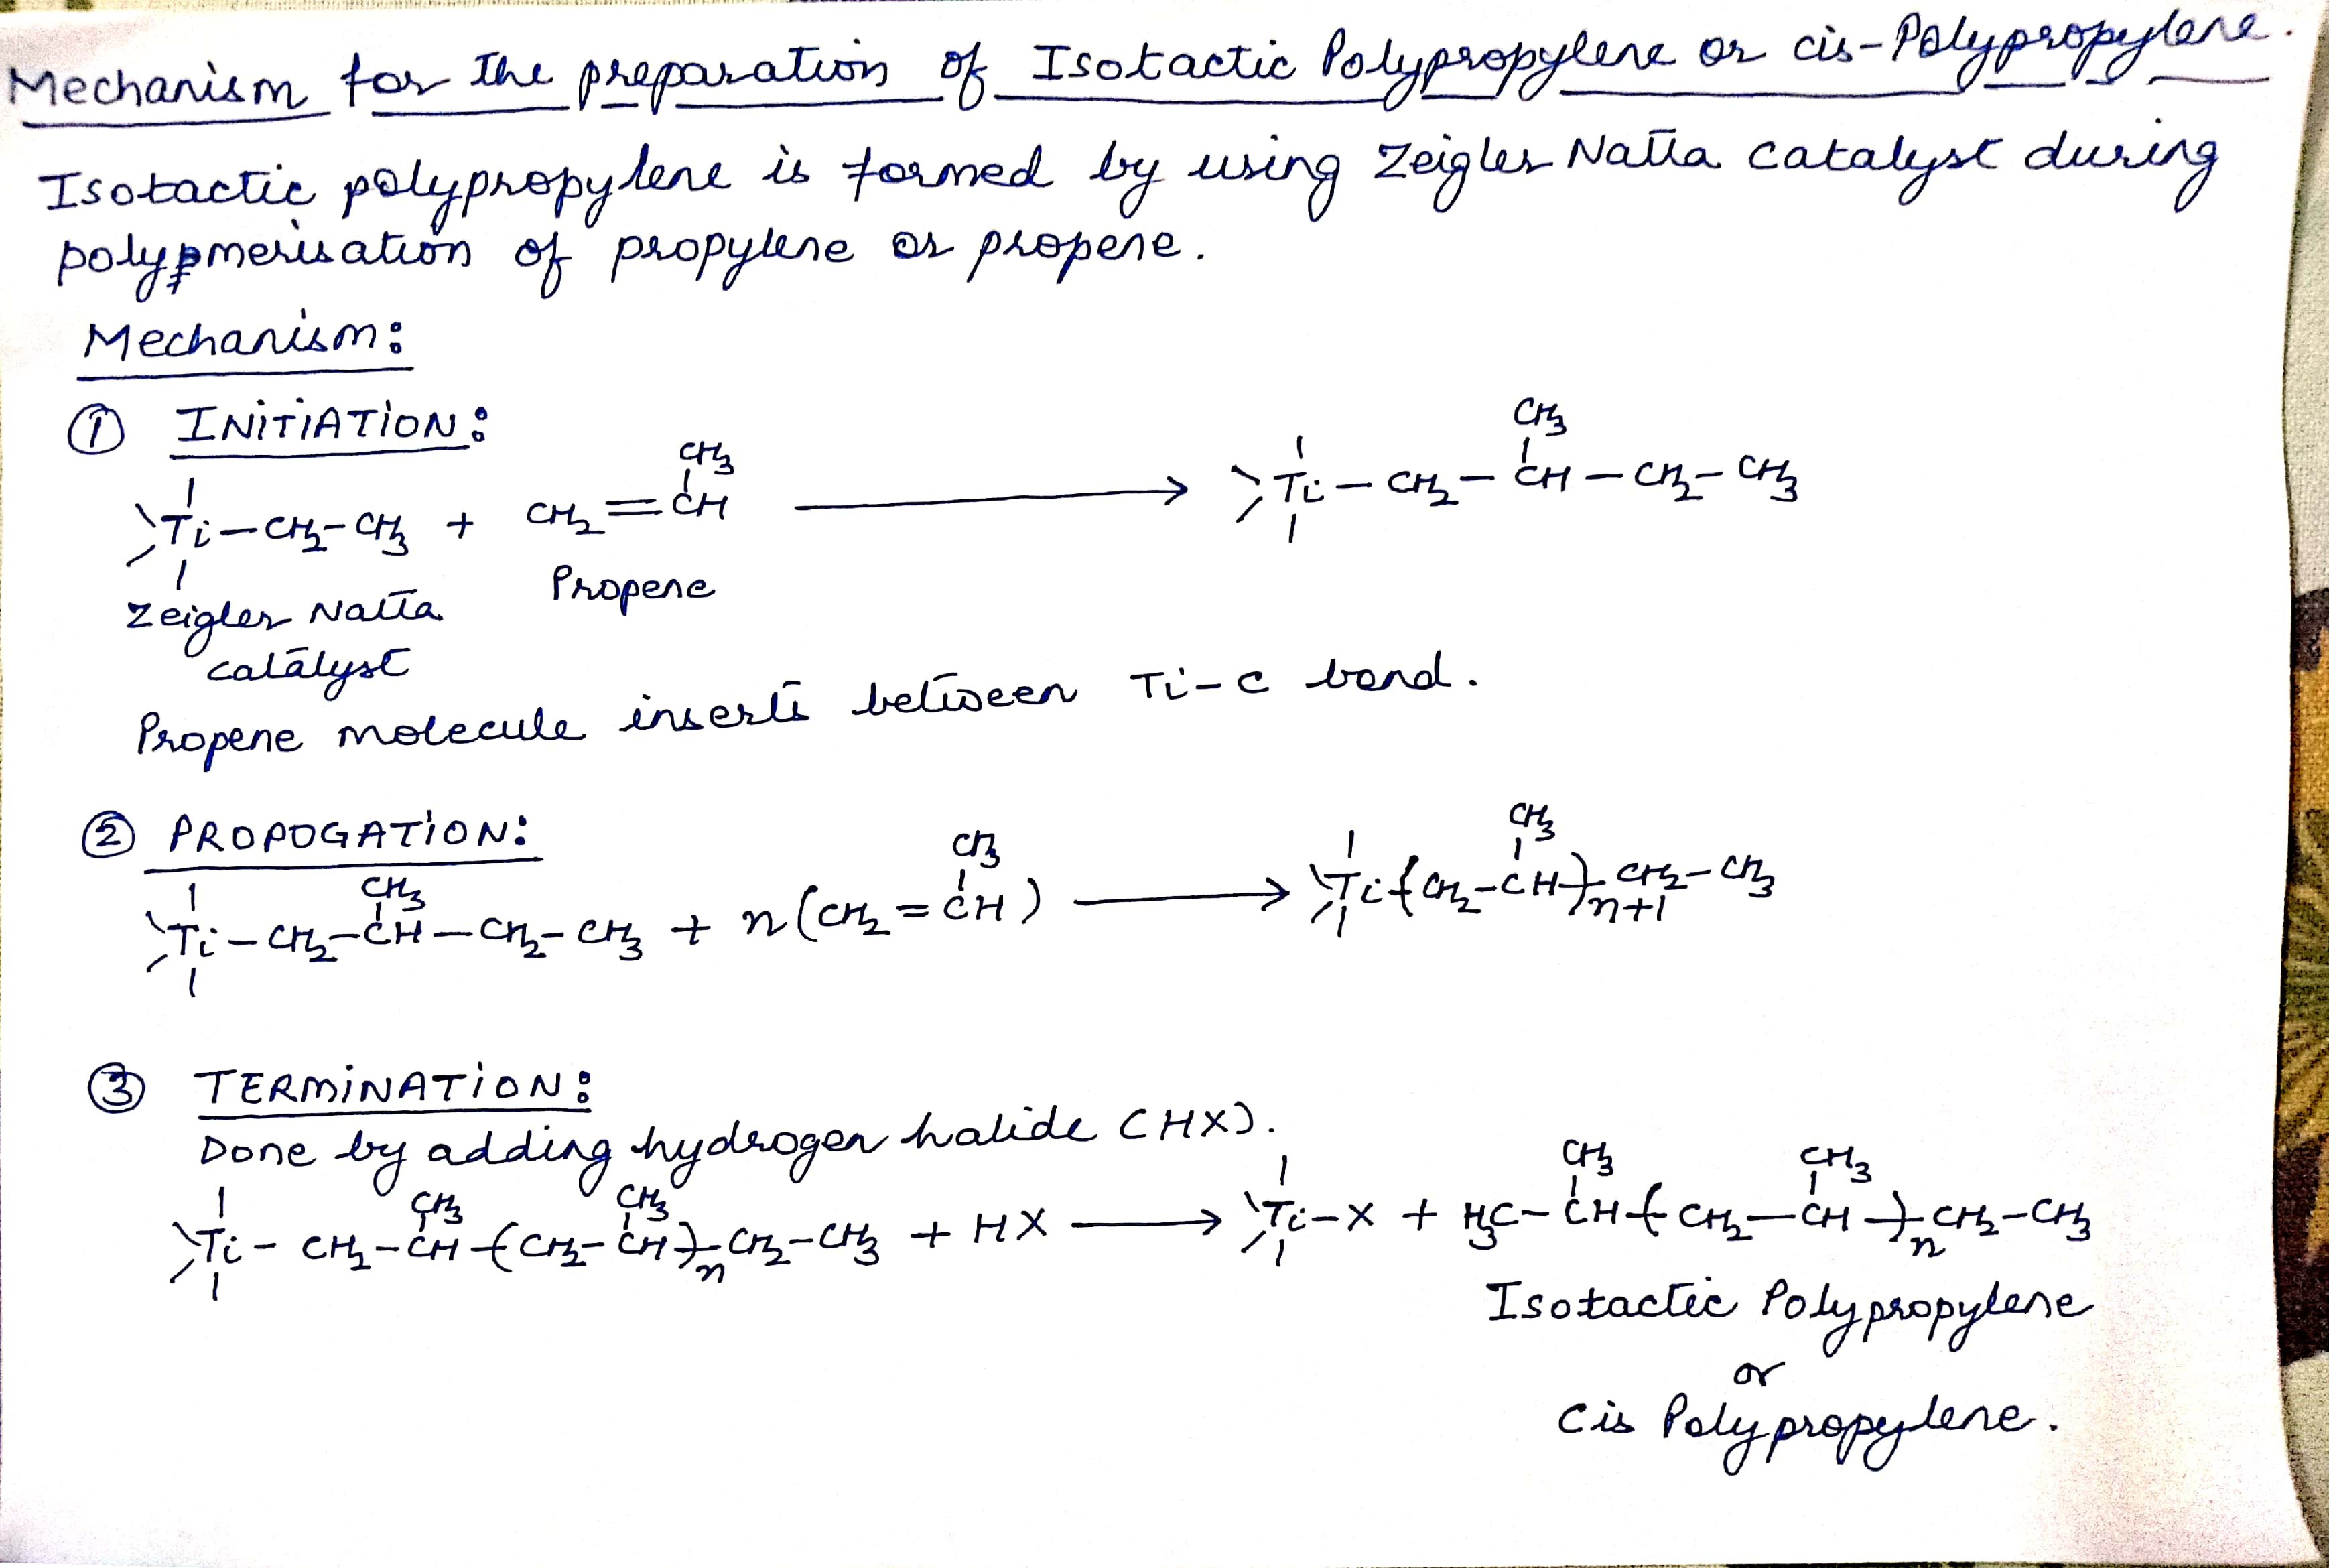 Mechanism for the preparation of Isotactic Polypropylene or cis-Polypropylene.
Isotactic polypropylene is formed by using Zeigler Natta catalyst during
polypmerisation of propylene or propene.
Mechanism:
① INITIATION:
CH3
CH3
Ti-CH2-CH3 + CH2=CH → Ti-CH2-CH-CH2-CH3
Zeigler Natta Propene
catalyst
Propene molecule inserts between Ti-C bond.
② PROPOGATION:
CH3 CH3 CH3
Ti-CH2-CH-CH2-CH3 + n(CH2=CH) → Ti(CH2-CH)n+1 CH2-CH3
③ TERMINATION:
Done by adding hydrogen halide (HX).
CH3 CH3 CH3 CH3
Ti-CH2-CH(CH2-CH)n CH2-CH3 + HX → Ti-X + H3C-CH(CH2-CH)n CH2-CH3
Isotactic Polypropylene
or
Cis Polypropylene.